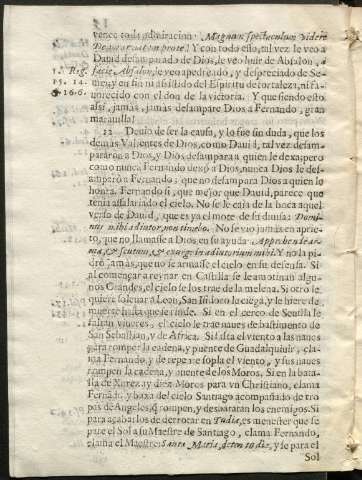 vence toda admiracion. Magnum spectaculum videre
Deum cum homine! Y con todo esto, tal vez le veo a
Dauid desamparado de Dios, le veo huir de Absalon, à
1. Reg. facie Absalon, le veo apedreado, y despreciado de Se-
15. 14. mey, en fin ni assistido del Espiritu de fortaleza, ni fa-
& 16.6. uorecido con el don de la victoria. Y que siendo esto
assi, jamàs, jamàs desampare Dios a Fernando, gran
marauilla!
12 Deuio de ser la causa, y lo fue sin duda, que los
demàs Valientes de Dios, como Dauid, tal vez desam-
pararon a Dios, y Dios desampara a quien le dexa; pero
como nunca Fernando dexò a Dios, nunca Dios le des-
amparò a Fernando, que no desampara Dios a quien lo
honra. Fernando si, que mejor que Dauid, parece que
tenia assalariado el cielo. No se le caìa de la boca aquel
verso de Dauid, que es ya el mote de su diuisa: Domi-
nus mihi adiutor, non timebo. No se viò jamàs en aprie-
to, que no llamasse a Dios en su ayuda: Apprehende ar-
ma, & scutum, & exurge in adiutorium mihi. Y no la pi-
diò jamàs, que no se armasse el cielo en su defensa. Si
al començar a reynar en Castilla se leuantaron algu-
nos Grandes, el cielo se los trae de la melena. Si otro le
quiere soleuar a Leon, San Isidoro la ciega, y le hiere de
muerte hasta que se rinde. Si en el cerco de Seuilla le
faltan viueres, el cielo le trae naues de bastimento de
San Sebastian, y de Africa. Si falta el viento a las naues
para romper la cadena, y puente de Guadalquiuir, cla-
ma Fernando, y de repente sopla el viento, y sus naues
rompen la cadena, y puente de los Moros. Si en la bata-
lla de Xerez ay diez Moros para vn Christiano, clama
Fernando, y baxa del cielo Santiago acompañado de tro-
pas de Angeles, q rompen, y desbaratan los enemigos. Si
para acabarlos de derrocar en Tudia, es menester que se
pare el Sol a su Maestre de Santiago, clama Fernando,
clama el Maestre: Santa Maria, deten tu dia, y se para el
Sol